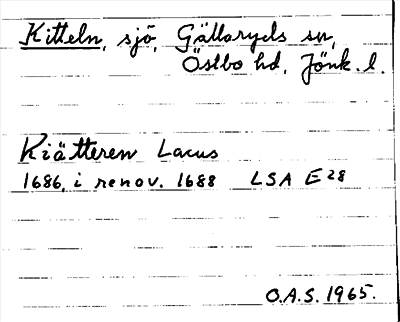 Kitteln, sjö, Gällaryds sn,
Östbo hd, Jönk. l.
Kiätteren Lacus
1686, i renov. 1688 LSA E28
O.A.S. 1965.